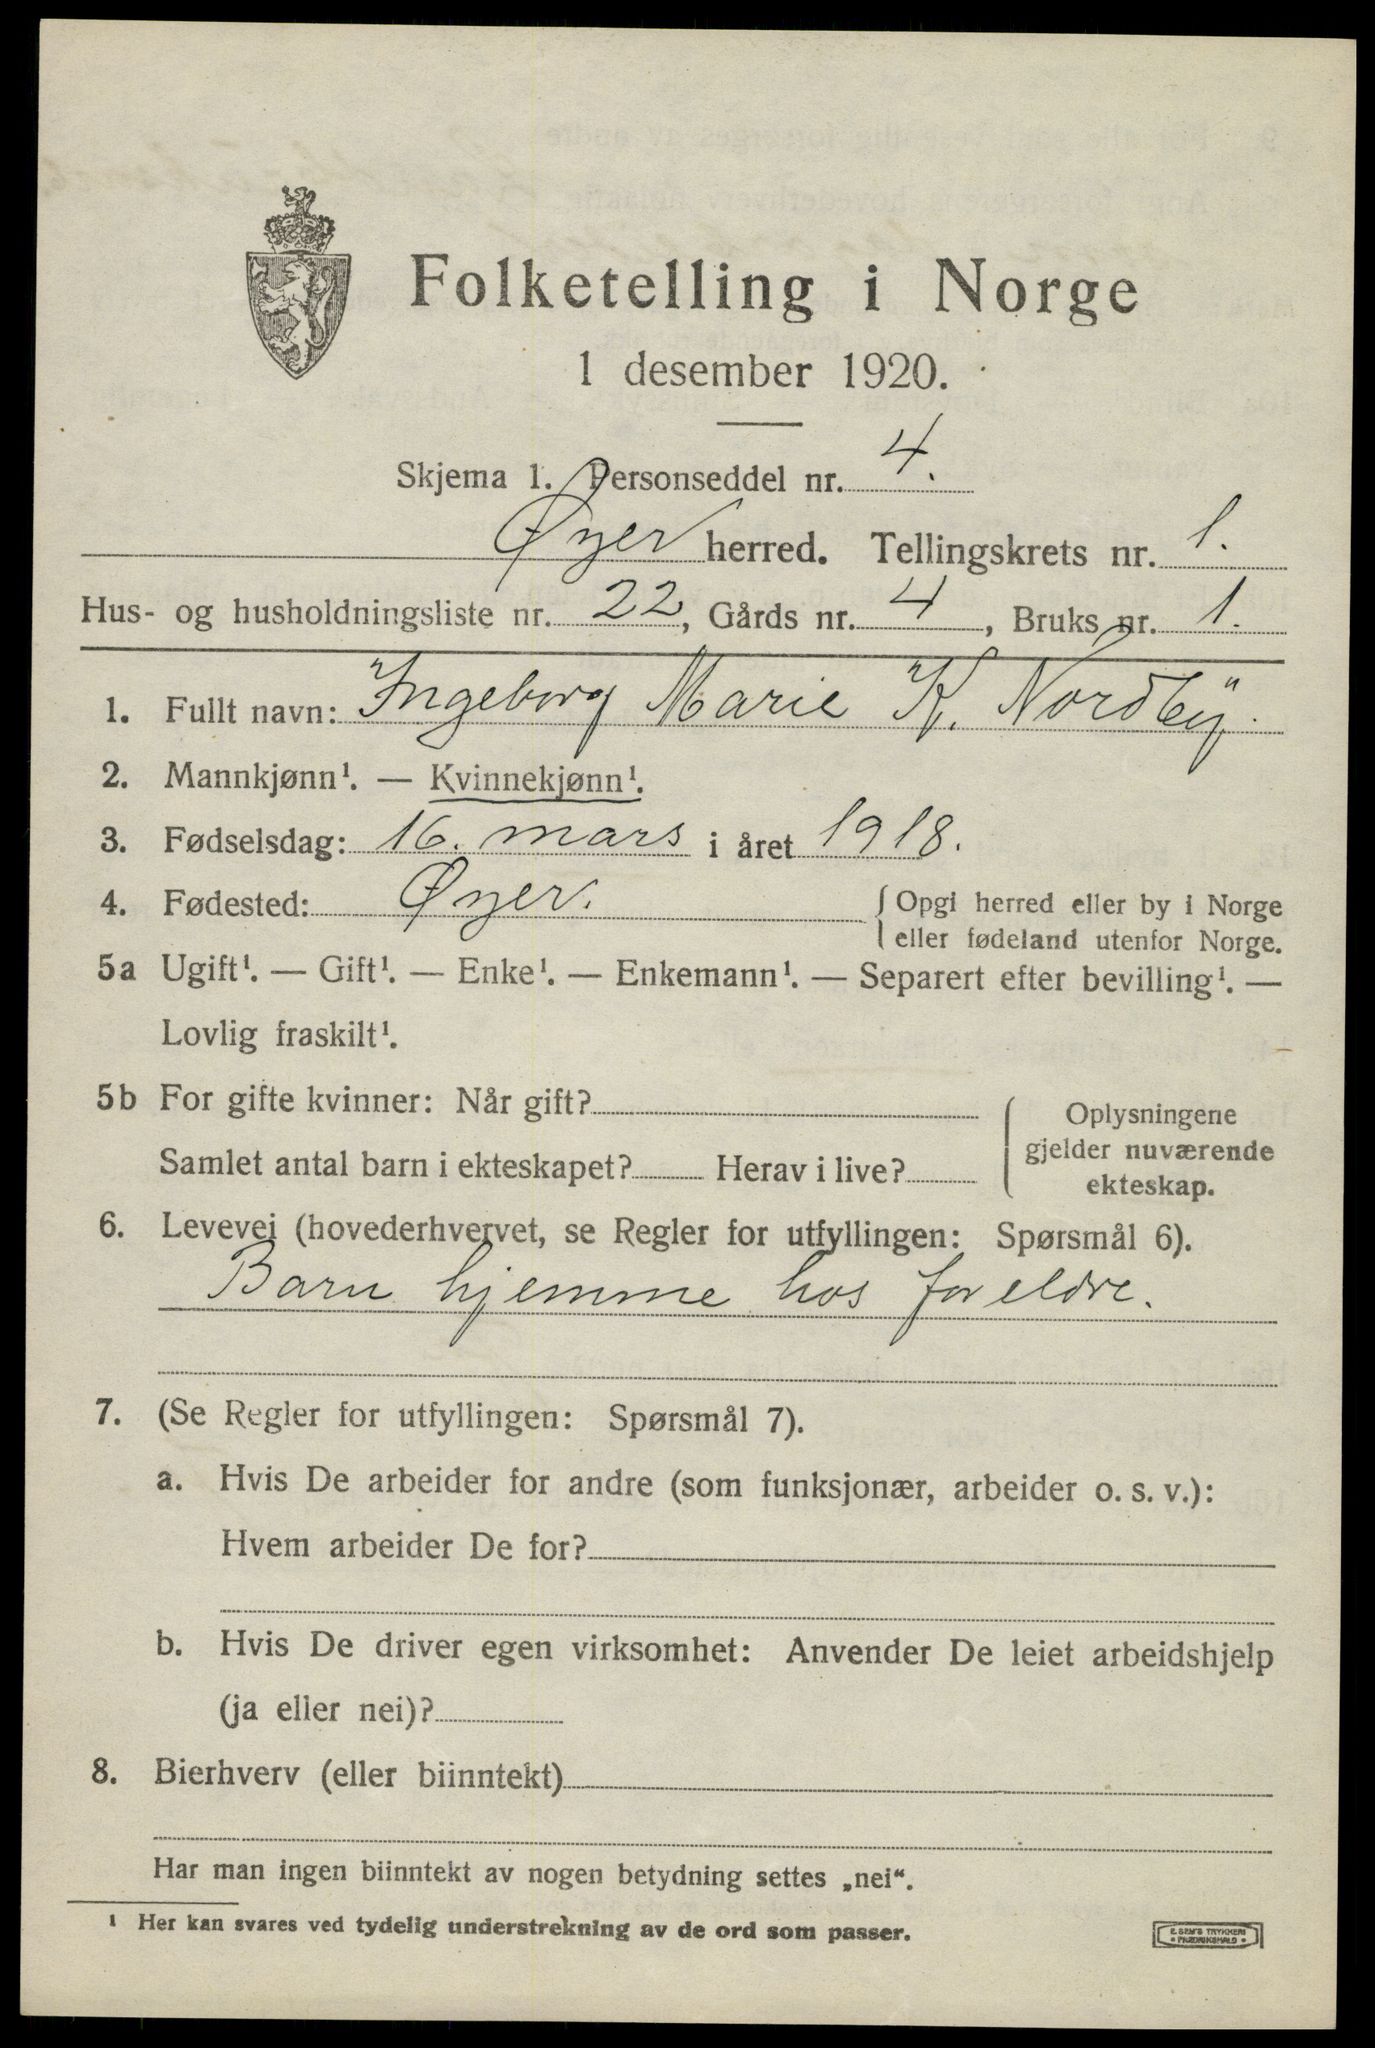 Folketelling i Norge
1 desember 1920.
Skjema 1. Personseddel nr. 4.
Øyer herred. Tellingskrets nr. 1.
Hus- og husholdningsliste nr. 22, Gårds nr. 4, Bruks nr. 1.
1. Fullt navn: "Ingeborg Marie K. Nordby".
2. Mannkjønn¹. — Kvinnekjønn¹.
3. Fødselsdag: 16. mars i året 1918.
4. Fødested: Øyer. { Opgi herred eller by i Norge
eller fødeland utenfor Norge.
5a Ugift¹. — Gift¹. — Enke¹. — Enkemann¹. — Separert efter bevilling¹. —
Lovlig fraskilt¹.
5b For gifte kvinner: Når gift?
Samlet antal barn i ekteskapet? Herav i live?
Oplysningene
gjelder nuværende
ekteskap.
6. Levevei (hovederhvervet, se Regler for utfyllingen: Spørsmål 6).
Barn hjemme hos foreldre.
7. (Se Regler for utfyllingen: Spørsmål 7).
a. Hvis De arbeider for andre (som funksjonær, arbeider o. s. v.):
Hvem arbeider De for?
b. Hvis De driver egen virksomhet: Anvender De leiet arbeidshjelp
(ja eller nei)?
8. Bierhverv (eller biinntekt)
Har man ingen biinntekt av nogen betydning settes „nei“.
¹ Her kan svares ved tydelig understrekning av de ord som passer.
E. SEM'S TRYKKERI
• FREDRIKSHALD •